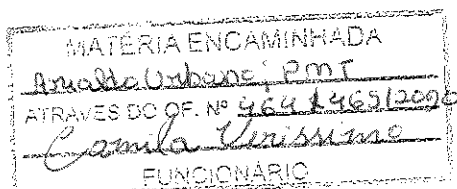 MATÉRIA ENCAMINHADA
Arnaldo Urbano; PMT
ATRAVES DO OF. Nº 464 & 469/2020
Camila Verissimo
FUNCIONÁRIO